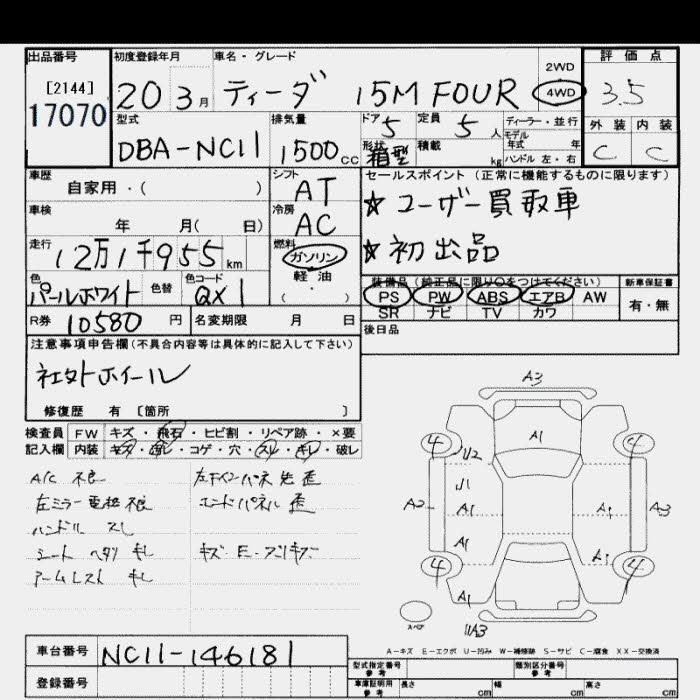 出品番号 初度登録年月 車名・グレード 2WD 4WD 評価点
[2144]
17070 20 3月 ティーダ 15M FOUR 3.5
型式 DBA-NC11 排気量 1500cc ドア 5 定員 5人 ディーラー・並行 外装 内装
形状 箱型 積載 kg モデル年式 年 ハンドル 左・右 C C
車歴 自家用・( ) シフト AT セールスポイント(正常に機能するものに限ります)
車検 年 月( 日) 冷房 AC ☆ユーザー買取車
走行 12万1千955km 燃料 ガソリン ☆初出品
軽・油
・
( )
色 パールホワイト 色替 色コード QX1 装備品(純正品に限り○をつけてください) 新車保証書
PS PW ABS エアB AW 有・無
SR ナビ TV カワ
R券 10580円 名変期限 月 日 後日品
注意事項申告欄(不具合内容等は具体的に記入して下さい)
社外ホイール
修復歴 有 [箇所 ]
検査員 FW キズ・飛石・ヒビ割・リペア跡・×要
記入欄 内装 キズ・ヨゴレ・コゲ・穴・スレ・キレ・破レ
A/C 不良
左ミラー電格不良
ハンドル スレ
シート ヘタリ キレ
アームレスト キレ
エンドパネル 歪
A3
A1
4 4
U2
U1
A2 A1 A1 A3
A1 A1
4 4
A1
スペア
A3
A-キズ E-エクボ U-凹み W-補修跡 S-サビ C-腐食 XX-交換済
車台番号 NC11-146181
登録番号
型式指定番号 参考 類別区分番号 参考
車庫証明用 参考 長さ cm 幅 cm 高さ cm